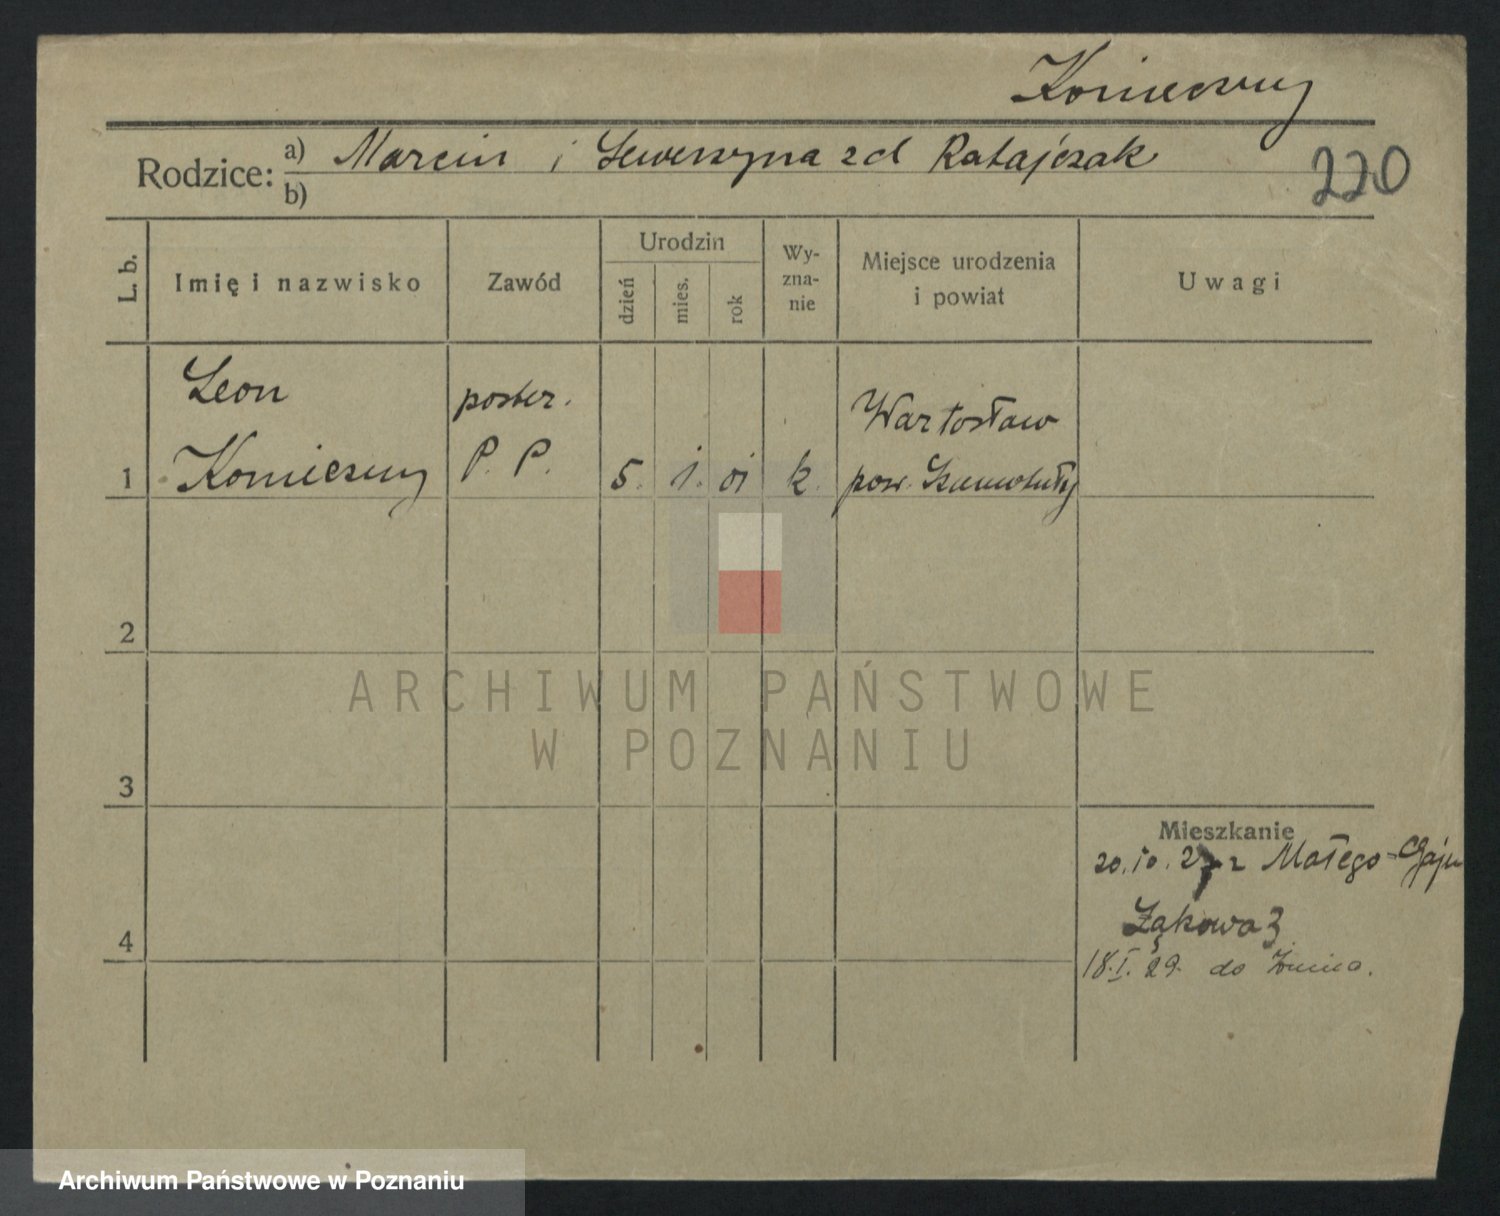 Konieczny
Rodzice: a) Marcin i Seweryna zd Ratajczak
b)
220
L. b.
Imię i nazwisko
Zawód
Urodzin
dzień
mies.
rok
Wy-
zna-
nie
Miejsce urodzenia
i powiat
Uwagi
Leon
Konieczny
poster.
P. P.
5. 1. 01
k.
Wartosław
pow. Szamotuły
1
2
3
4
Mieszkanie
20.10.27 z Małego-Gaju
18.I.29. do Żnina.
ARCHIWUM PAŃSTWOWE
W POZNANIU
Archiwum Państwowe w Poznaniu